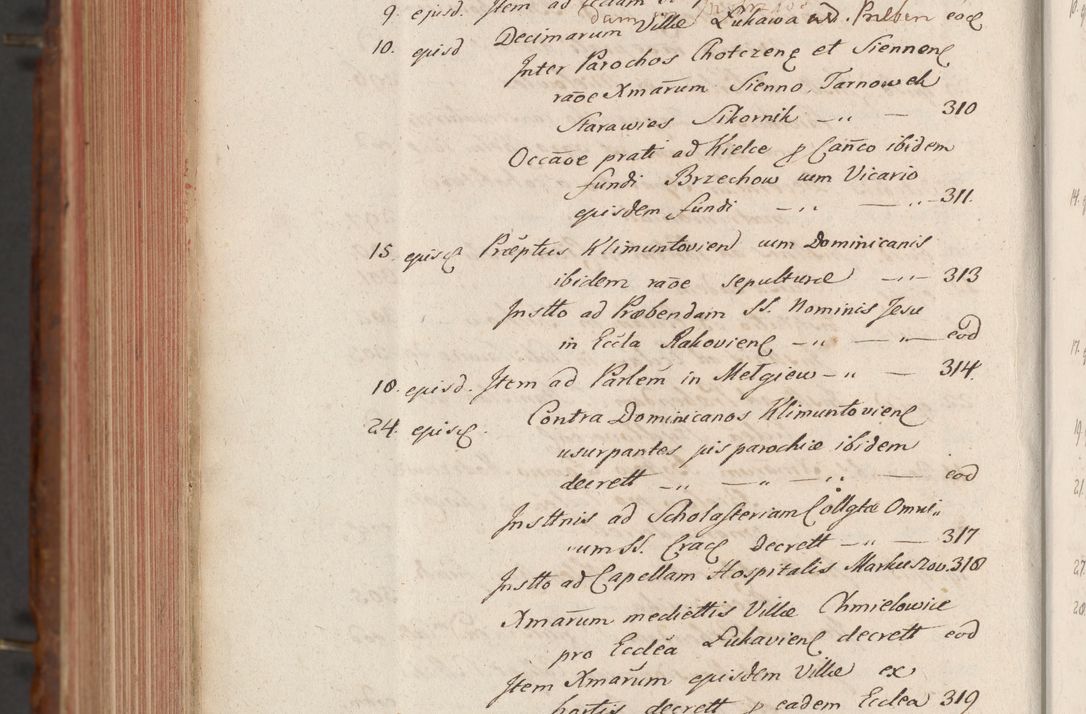 9. ejusd. Item ad
Decimarum Villæ Lukawa eod
10. ejusd
Inter Parochos Chotczenę et Siennenę
raõe Xmarum Sienno, Tarnowek
Starawies Sikornik — „ — 310
Occãoe prati ad Kielce p Cañco ibidem
fundi Brzechow cum Vicario
ejusdem fundi — „ — „ — 311.
15. ejusd Præptus Klimuntovien cum Dominicanis
ibidem raõe sepulturæ — „ — 313
Instto ad Præbendam SS. Nominis Jesu
in Eccla Rakovienę — „ — „ — eod
18. ejusd. Item ad Parlem in Mełgiew — „ — 314.
24. ejusd. Contra Dominicanos Klimuntovienę
usurpantes jus parochiæ ibidem
decrett — „ — „ — „ — eod
Insttnis ad Scholasteriam Collgtæ Omni„
„um SS. Cracę Decrett — „ — 317
Instto ad Capellam Hospitalis Markuszov. 318
Xmarum mediettis Villæ Chmielowice
pro Ecclea Lukavienę decrett eod
Item Xmarum ejusdem Villæ ex
hortis decrett p eadem Ecclea 319